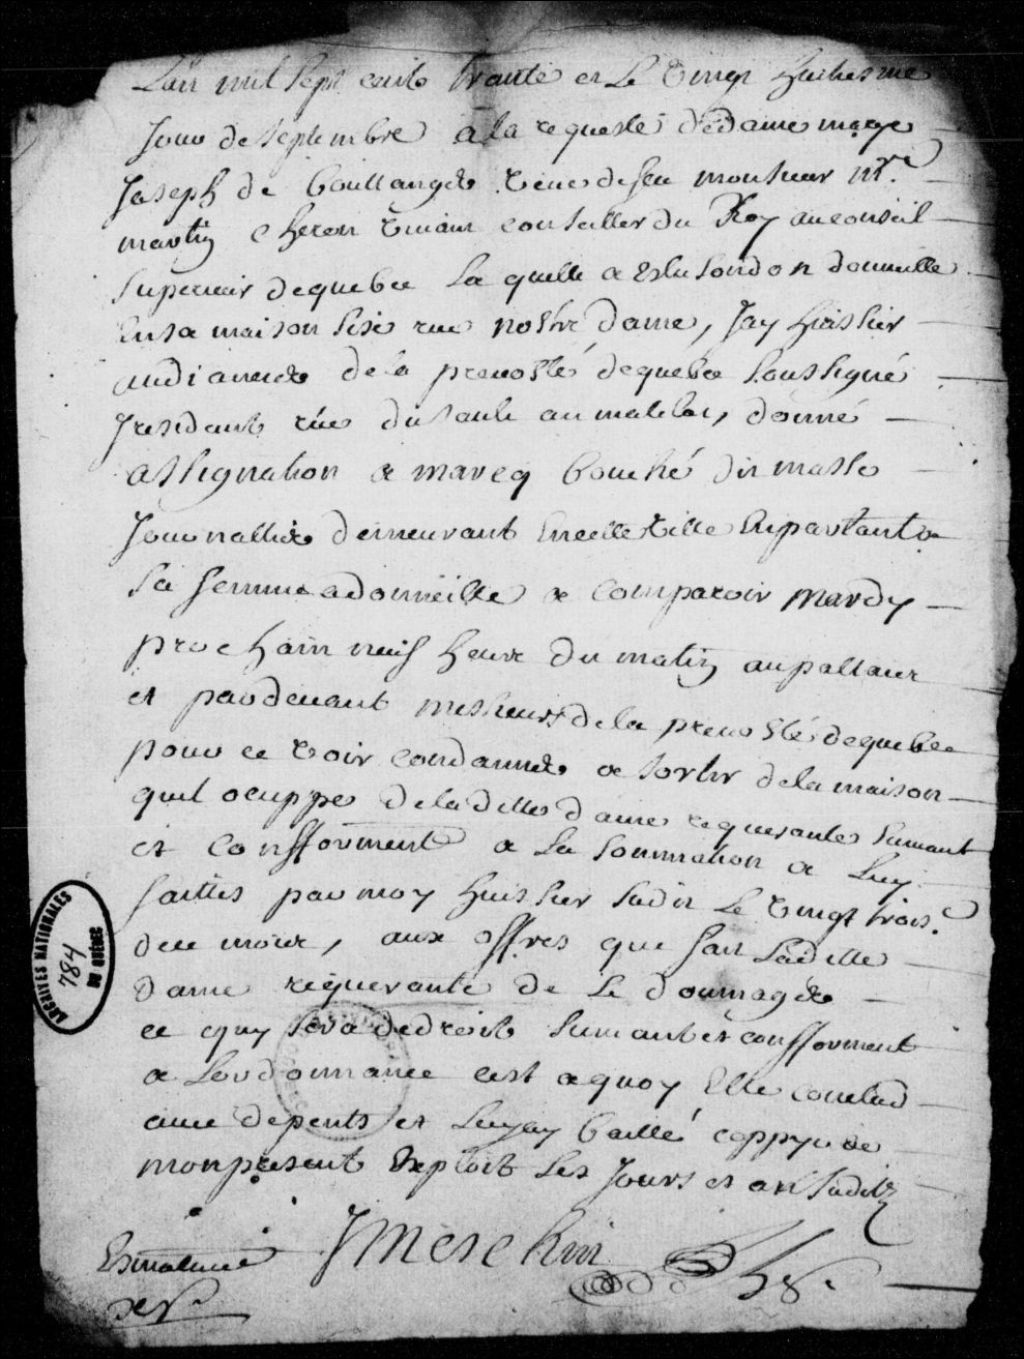 Lan mil sept cents trante et Le vingt huitiesme
Jour de septembre a la requeste dedame marye
Joseph de boullanger veuve defeu monsieur Mre.
martin Cheron vivant conseiller du Roy auconseil
superieur dequebec La quelle a eslu son don domicille
En sa maison size rue nostre dame, Jay huissier
audiancier de la prevosté dequebec soussigné
Jresidant rüe du sault au matelot, donné
assignation a marcq bouché dit
Journallier demeurant Encette ville Enparlant a
sa femme a domicille a Comparoir mardy
prochain neuf heure du matin aupallais
et pardevant messieurs de la prevosté dequebec
pour ce voir Condanner a sortir dela maison
quil ocuppe deladitte dame requerante suivant
et Confforment a La sommation a Luy
faitte par moy huissier sudit Le vingt trois.e
du, aux offres que fait Laditte
Dame requerante de Le doumager
ce quy sera dedroit suivant et confforment
a Lordonnance cest aquoy Elle conclud
avec depents et Luy ay baillé coppye de
mon present Exploit Les Jours et an sudits
JMeschin
ARCHIVES NATIONALES
784
DU QUÉBEC